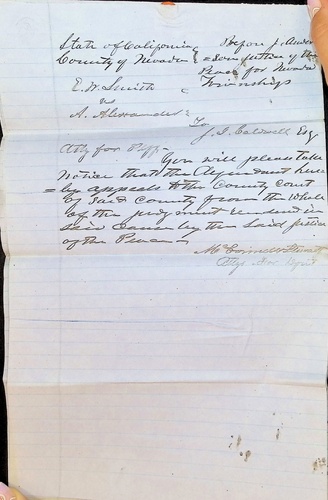 State of California Before J. Ander
County of Nevada = son Justice of the
Peace for Nevada
E. W. Smith Township
vs
A. Alexander
To
J. S. Caldwell Esq
Atty for Plff.
You will please take
Notice that the here
= by appeals to the County Court
of said County from the whole
of the judgment rendered in
said cause by the said Justice
of the Peace
Attys for